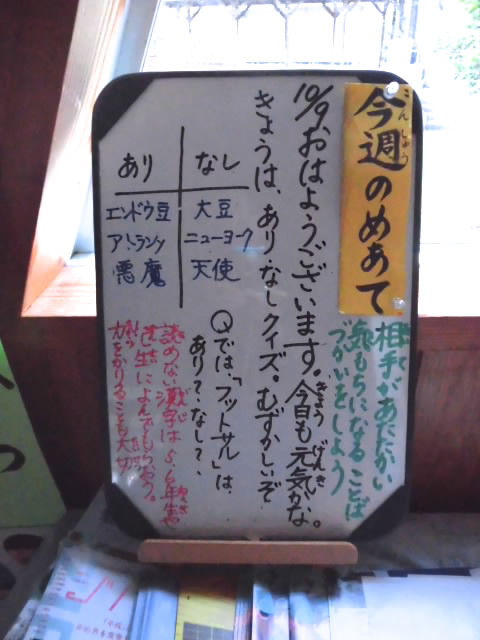 今週のめあて
こんしゅう
相手があたたかい
気もちになることば
づかいをしよう
10/9 おはようございます。今日も元気かな。
きょう げんき
きょうは、あり・なしクイズ。むずかしいぞ
あり なし
エンドウ豆 大豆
ニューヨーク
悪魔 天使
Qでは、「フットサル」は、
あり？、なし？、
読めない漢字は5、6年生
先生によんでもらおう。
力をかりることも大切